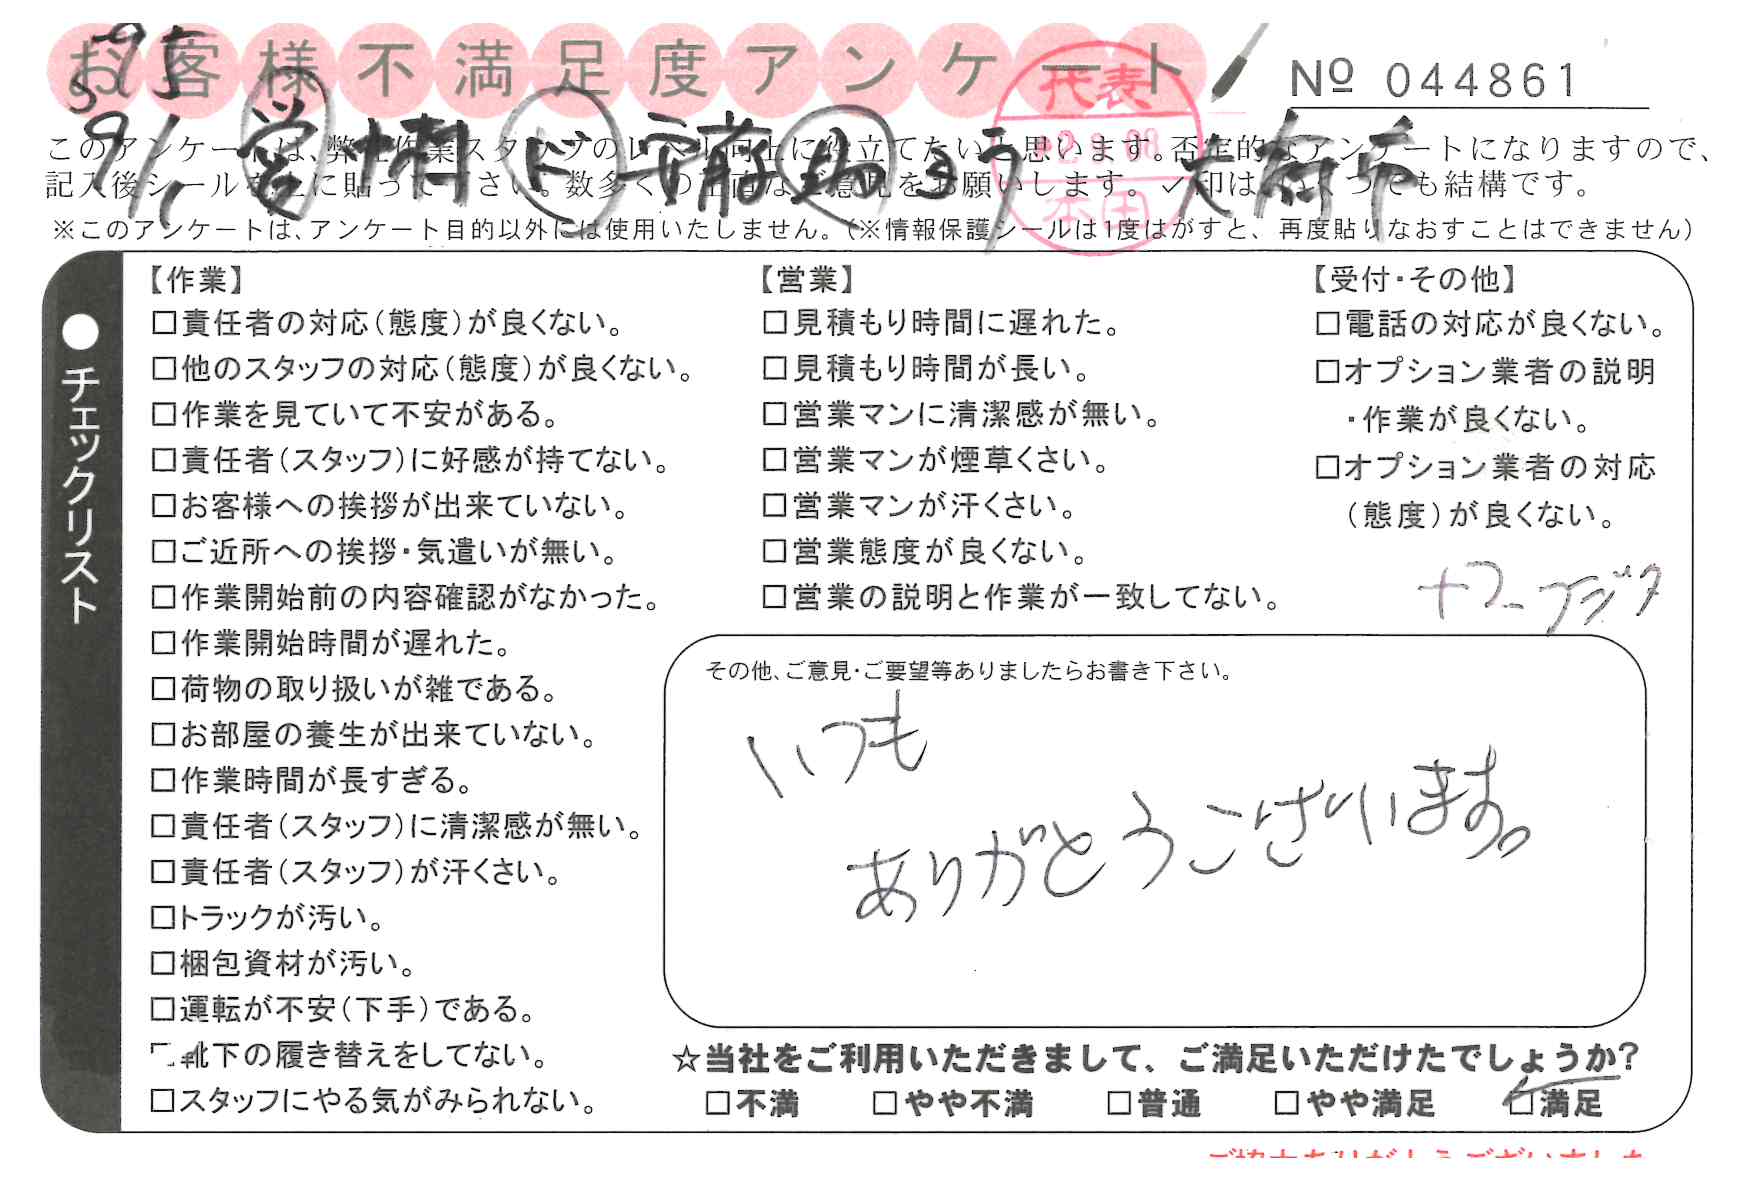 お客様不満足度アンケート
No 044861
代表
本田
9/1
このアンケートは、弊社作業スタッフのレベル向上に役立てたいと思います。否定的なアンケートになりますので、
記入後シールを上に貼って下さい。数多くの正直なご意見をお願いします。✓印はいくつでも結構です。
※このアンケートは、アンケート目的以外には使用いたしません。(※情報保護シールは1度はがすと、再度貼りなおすことはできません)
●チェックリスト
【作業】
□責任者の対応(態度)が良くない。
□他のスタッフの対応(態度)が良くない。
□作業を見ていて不安がある。
□責任者(スタッフ)に好感が持てない。
□お客様への挨拶が出来ていない。
□ご近所への挨拶・気遣いが無い。
□作業開始前の内容確認がなかった。
□作業開始時間が遅れた。
□荷物の取り扱いが雑である。
□お部屋の養生が出来ていない。
□作業時間が長すぎる。
□責任者(スタッフ)に清潔感が無い。
□責任者(スタッフ)が汗くさい。
□トラックが汚い。
□梱包資材が汚い。
□運転が不安(下手)である。
□靴下の履き替えをしてない。
□スタッフにやる気がみられない。
【営業】
□見積もり時間に遅れた。
□見積もり時間が長い。
□営業マンに清潔感が無い。
□営業マンが煙草くさい。
□営業マンが汗くさい。
□営業態度が良くない。
□営業の説明と作業が一致してない。
【受付・その他】
□電話の対応が良くない。
□オプション業者の説明
・作業が良くない。
□オプション業者の対応
(態度)が良くない。
その他、ご意見・ご要望等ありましたらお書き下さい。
いつも
ありがとうございます。
☆当社をご利用いただきまして、ご満足いただけたでしょうか?
□不満 □やや不満 □普通 □やや満足 □満足
ご協力ありがとうございました